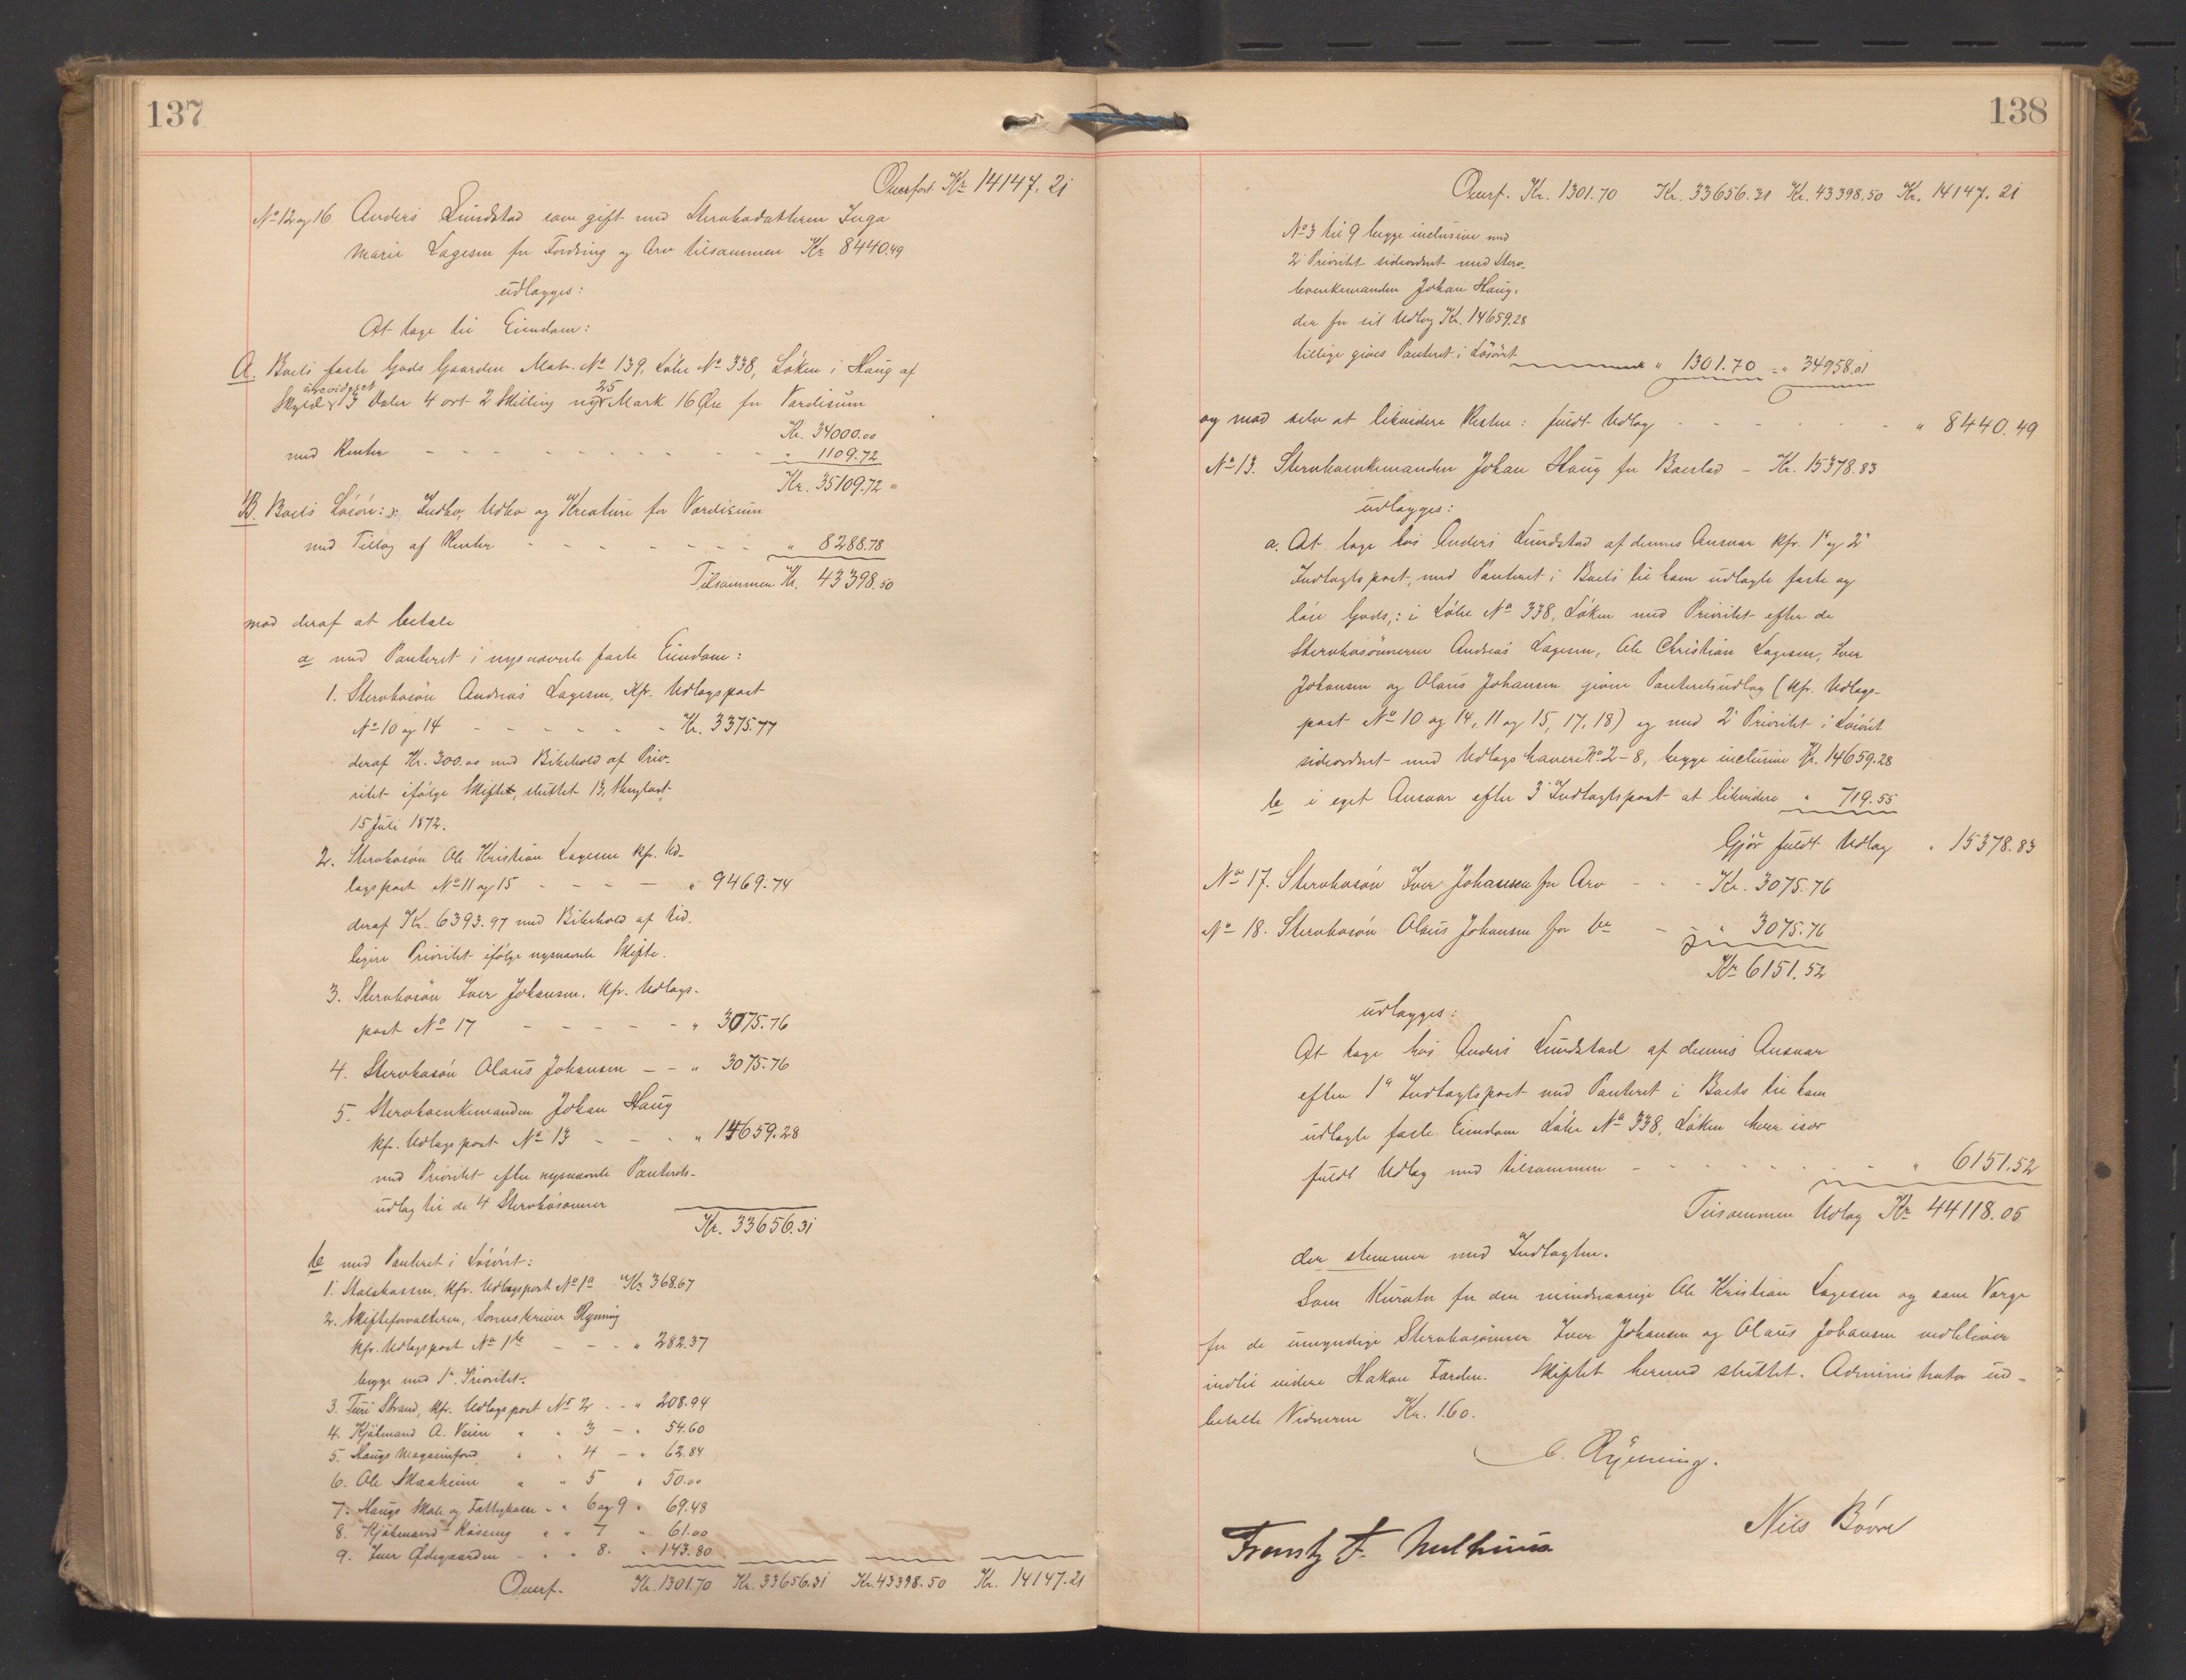 137
Overført Kr 14147.21
No 12 og 16. Anders Lundstad som gift med Stervbodatteren Inga
Marie Lagesen for Fordring og Arv tilsammen Kr 8440.49
udlægges:
At tage til Eiendom:
A. Boets faste Gods Gaarden Matr. No 139, Løbe No 338, Løken i Haug af
Skyld urevideret 3 Daler 4 ort 2 Skilling ny 25 Mark 16 Øre for Vardisum
Kr. 34000.00
med Renter - - - - - " 1109.72
Kr. 35109.72
B. Boets Løsøre: Indbo, Udbo og Kreature for Vardisum
med Tillæg af Renter - - - - - " 8288.78
Tilsammen Kr. 43398.50
mod deraf at betale
a med Panteret i nysnævnte faste Eiendom:
1. Stervbosøn Andreas Lagesen, kfr. Udlagspost
No 10 og 14 - - - - - Kr. 3375.77
deraf Kr. 300.00 med Bibehold af Prio-
ritet ifølge Skiftet, sluttet 13, thinglæst
15 Juli 1872.
2. Stervbosøn Ole Kristian Lagesen kfr. Ud-
lagspost No 11 og 15 - - - - " 9469.74
deraf Kr. 6393.97 med Bibehold af tid-
ligere Prioritet ifølge nysnævnte Skifte.
3. Stervbosøn Iver Johansen, kfr. Udlags-
post No 17 - - - - - " 3075.76
4. Stervbosøn Olaus Johansen - - " 3075.76
5. Stervboenkemanden Johan Haug
kfr. Udlagspost No 13 - - - " 14659.28
med Prioritet efter nysnævnte Panterets-
udlæg til de 4 Stervbosønner
Kr. 33656.31
b med Panteret i Løsøret:
1. Statskassen, kfr. Udlagspost No 1a Kr 368.67
2. Skifteforvalteren, Sorenskriver Rynning
kfr. Udlagspost No 1b - - - " 282.37
begge med 1ste Prioritet.
3. Strand, kfr. Udlagspost No 2 - - " 208.94
4. Kjøbmand A. Veien " " 3 - " 54.60
5. Haugs Magasinfond " " 4 - " 62.84
6. Ole Skaaheim " " 5 " 50.00
7. Haugs Skole og Fattigkasse " " 6 og 9 " 69.48
8. Kjøbmand " " 7 " 61.00
9. Iver Ødegaarden - " " 8. " 143.80
Overf. Kr. 1301.70 Kr. 33656.31 Kr. 43398.50 Kr. 14147.21
138
Overf. Kr. 1301.70 Kr. 33656.31 Kr. 43398.50 Kr. 14147.21
No 3 til 9 begge inclusive med
2' Prioritet sideordnet med Sterv-
boenkemanden Johan Haug,
der for sit Udlæg Kr. 14659.28
tillige gives Panteret i Løsøret " 1301.70 = " 34958.01
og mod selv at likvidere Resten: fuldt Udlæg - - - - - " 8440.49
No 13. Stervboenkemanden Johan Haug for Boeslod - Kr. 15378.83
udlægges:
a. At tage hos Anders Lundstad af dennes Ansvar kfr. 1' og 2'
Indtægtspost, med Panteret i Boets til ham udlagte faste og
løse Gods,: i Løbe No 338, Løken med Prioritet efter de
Stervbosønnerne Andreas Lagesen, Ole Christian Lagesen, Iver
Johansen og Olaus Johansen givne Panteretsudlæg (kfr. Udlægs-
post No 10 og 14, 11 og 15, 17, 18) og med 2' Prioritet i Løsøret
sideordnet med Udlægshavere No 2-8, begge inclusive Kr. 14659.28
b i eget Ansvar efter 3' Indtægtspost at likvidere " 719.55
Gjør fuldt Udlæg " 15378.83
No 17. Stervbosøn Iver Johansen for Arv - - - Kr. 3075.76
No 18. Stervbosøn Olaus Johansen for do - - " 3075.76
Kr 6151.52
udlægges:
At tage hos Anders Lundstad af dennes Ansvar
efter 1' Indtægtspost med Panteret i Boets til ham
udlagte faste Eiendom Løbe No 338, Løken hver især
fuldt Udlæg med tilsammen - - - - - " 6151.52
Tilsammen Udlæg Kr 44118.05
der stemmer med Indtægten.
Som Kurator for den mindreaarige Ole Kristian Lagesen og som Værge
for de umyndige Stervbosønner Iver Johansen og Olaus Johansen vedbliver
indtil videre Hakon Færden. Skiftet hermed sluttet. Administrator ud-
betalte Vidnerne Kr. 1.60.
C. Rynning.
Nils Bøvre